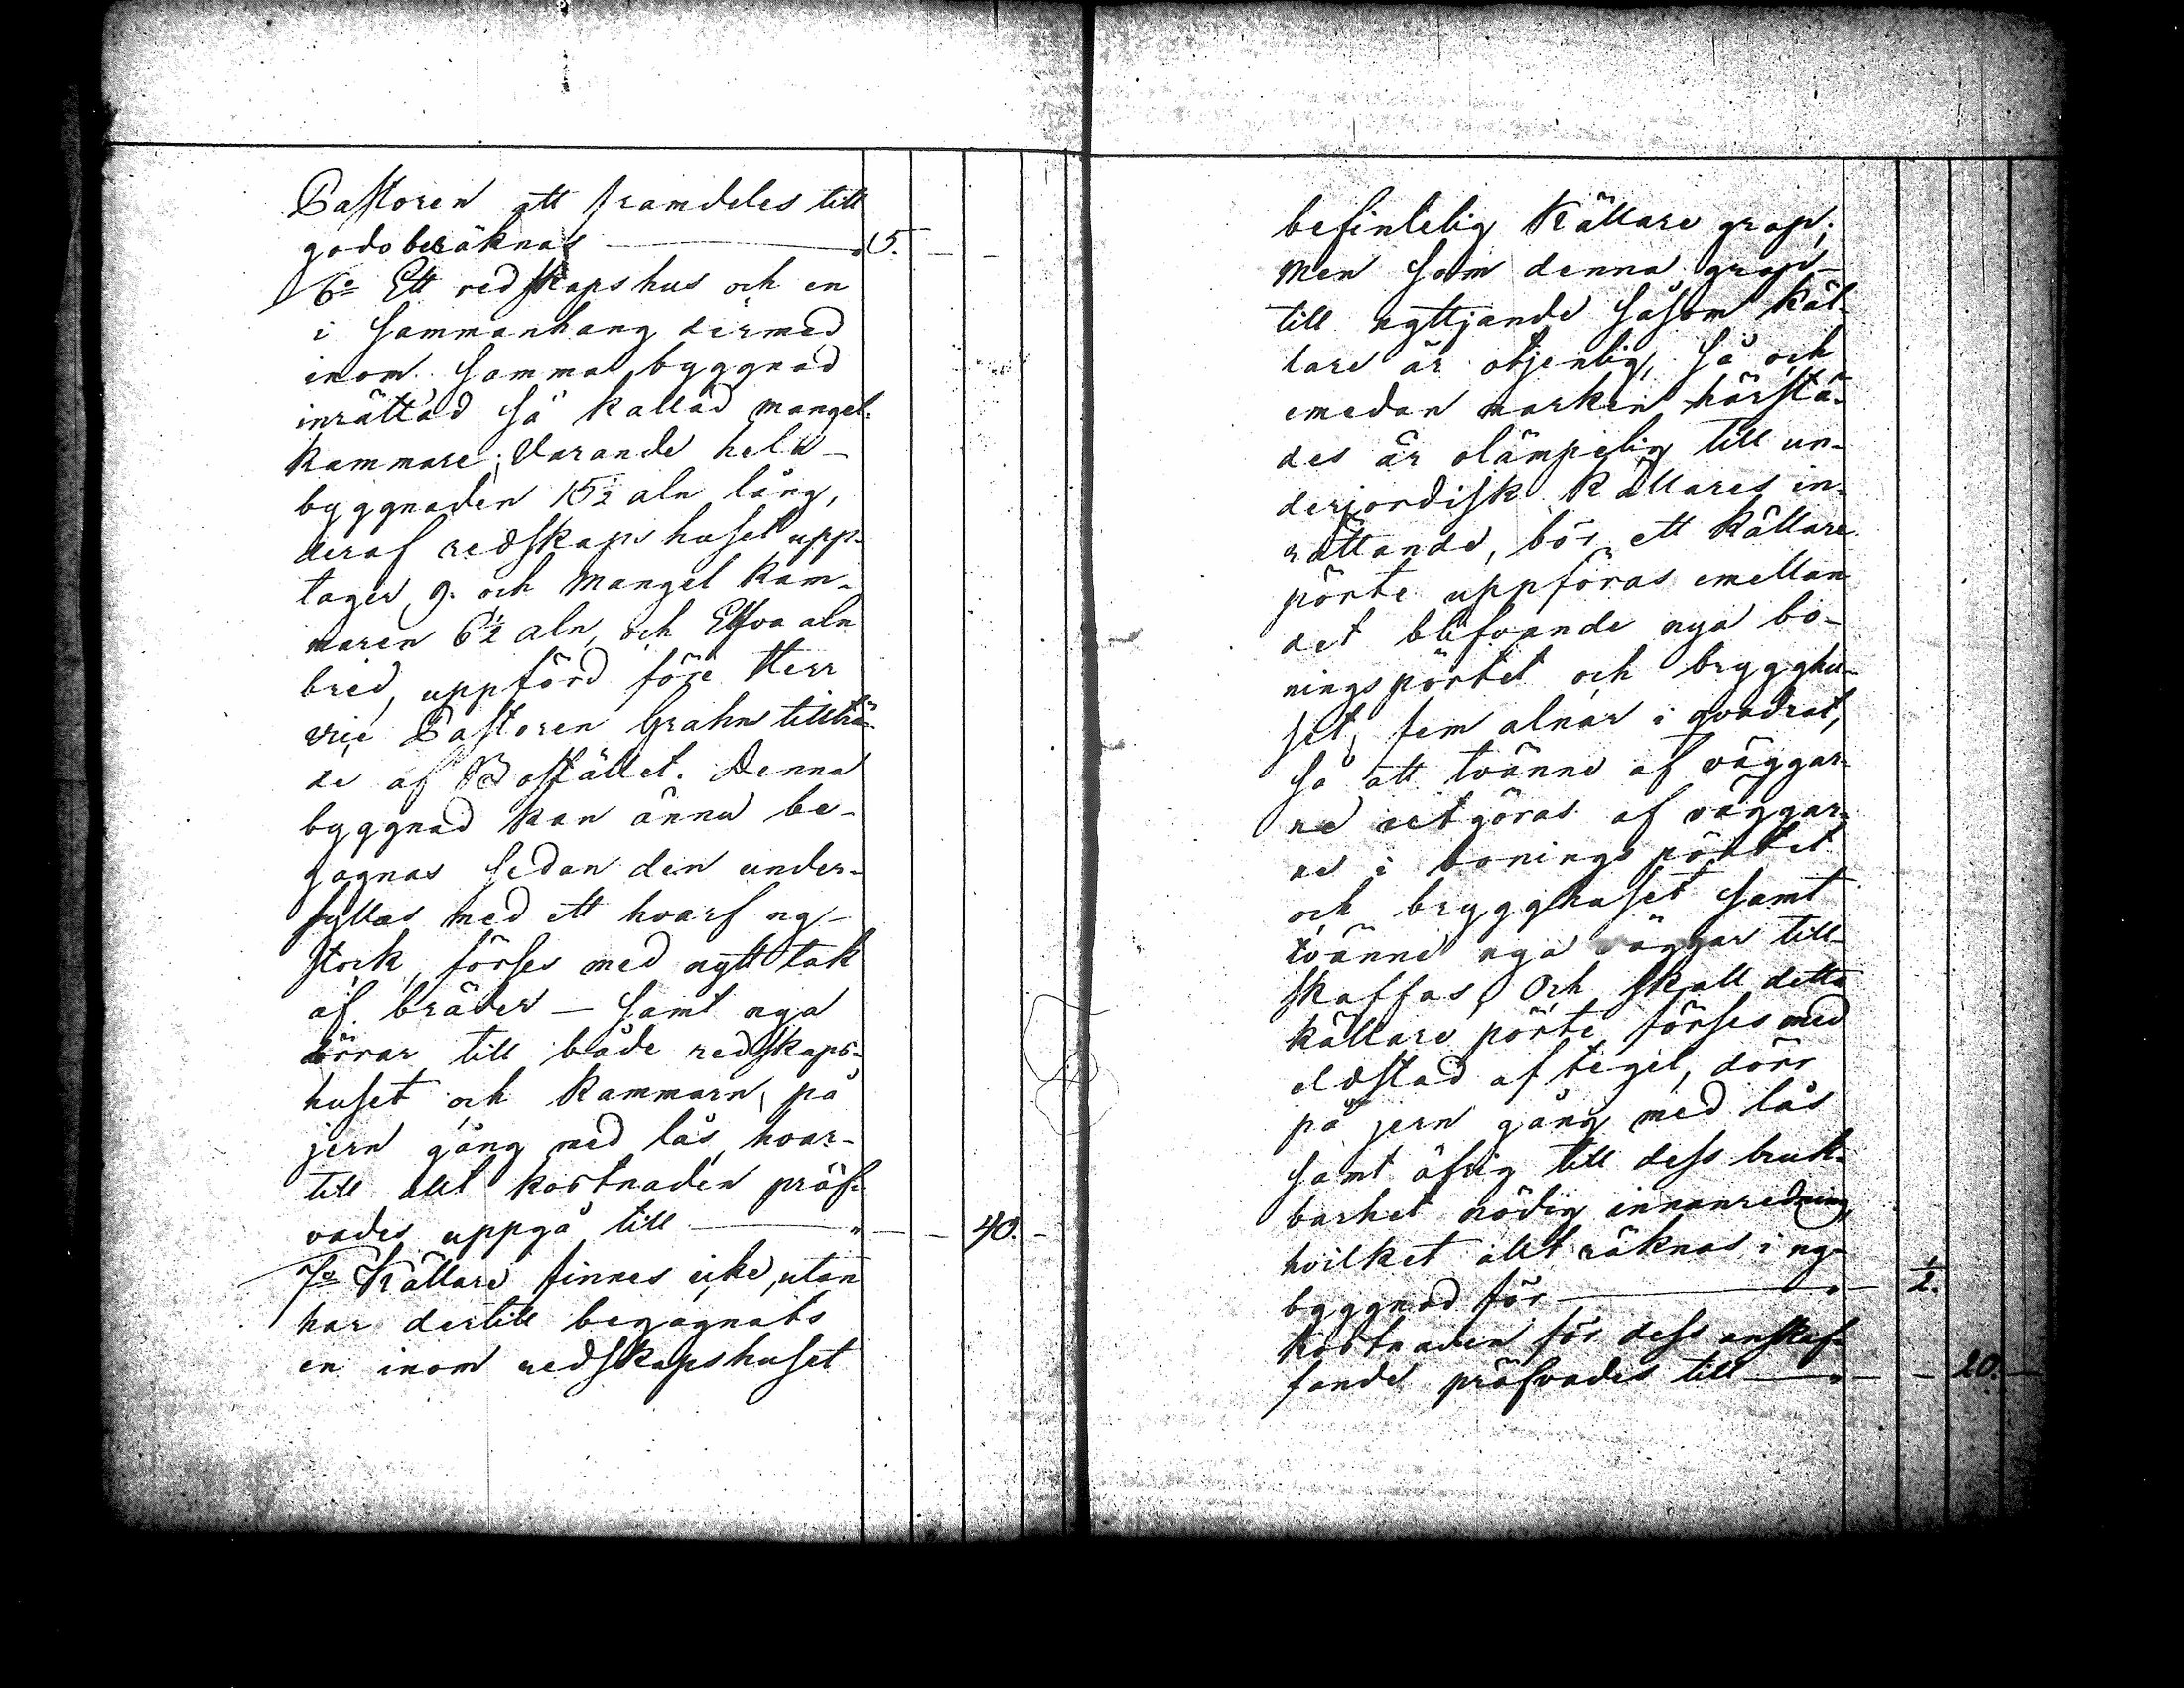 Pastoren att framdeles till
godo beräknas — " 5. — —
6o Ett redskapshus och en
i sammanhang dermed
inom samma byggnad
inrättad så kallad mangel-
kammare; Varande hela
byggnaden 15½ aln lång,
deraf redskapshuset upp-
tager 9. och Mangel kam-
maren 6½ aln, och Elfva aln
bred, uppförd före Herr
vice Pastoren Grahns tillträ-
de af Bostället. Denna
byggnad kan ännu be-
gagnas sedan den under-
syllas med ett hvarf ny
stock, förses med nytt tak
af bräder — samt nya
dörrar till både redskaps-
huset och kammarn, på
jern gång med lås, hvar-
till allt kostnaden pröf-
vades uppgå till — " — — 40. —
7o Källare finnes icke, utan
har dertill begagnats
en inom redskapshuset
befintelig Källare grop;
Men som denna grop
till nyttjande såsom käl-
lare är otjenlig, så och
emedan marken härstä-
des är olämpelig till un-
derjordisk Källares in-
rättande, bör ett Källare
pörte uppföras emellan
det blifvande nya bo-
ningspörtet och brygghu-
set, fem alnar i qvadrat,
så att tvänne af väggar-
ne utgöras af väggar-
ne i bonings pörtet
och brygghuset samt
tvänne nya väggar till-
skaffas, Och skall detta
källare pörte förses med
eldstad af tegel, dörr
på jern gång med lås
samt öfrig till dess bruk-
barhet nödig innanredning,
hvilket allt räknas i ny-
byggnad för — " — ½.
Kostnaden för dess anskaf-
fande pröfvades till — " — — 20. —